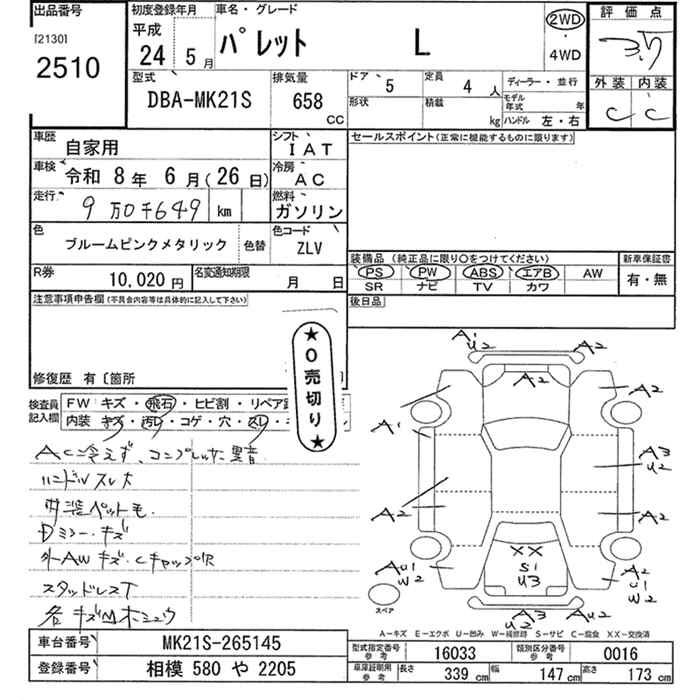 出品番号
[2130]
2510
初度登録年月
平成
24 年 5 月
車名・グレード
パレット L
2WD
・
4WD
評価点
3.5
外装 内装
C C
型式
DBA-MK21S
排気量
658
CC
ドア 5
定員 4 人
形状
積載 kg
ディーラー・並行
モデル年式 年
ハンドル 左・右
車歴 自家用
車検 令和 8 年 6 月(26 日)
走行 9万0千649 km
色 ブルームピンクメタリック 色替
シフト IAT
冷房 AC
燃料 ガソリン
色コード ZLV
R券 10,020 円
名変通知期限 月 日
セールスポイント(正常に機能するものに限ります)
装備品 (純正品に限り○をつけてください)
PS PW ABS エアB AW
SR ナビ TV カワ
新車保証書
有・無
後日品
注意事項申告欄(不具合内容等は具体的に記入して下さい)
修復歴 有〔箇所
★0売切り★
検査員記入欄
FW キズ・飛石・ヒビ割・リペア
内装 キズ・汚レ・コゲ・穴・スレ・
AC冷えず、コンプレッサ異音
ハンドルスレ大
内装ペット毛
Dミラーキズ
外AWキズ・Cキャップ
スタッドレスT
各キズ
A1
U2
A2
A2
A2
A1
A3
U2
A2
A2
A2
U1
W2
XX
S1
U3
A2
U2
AU2
スペア
A-キズ E-エクボ U-凹み W-補修跡 S-サビ C-腐食 XX-交換済
車台番号 MK21S-265145
登録番号 相模 580 や 2205
型式指定番号 参考 16033
類別区分番号 参考 0016
車庫証明用 参考 長さ 339 cm 幅 147 cm 高さ 173 cm